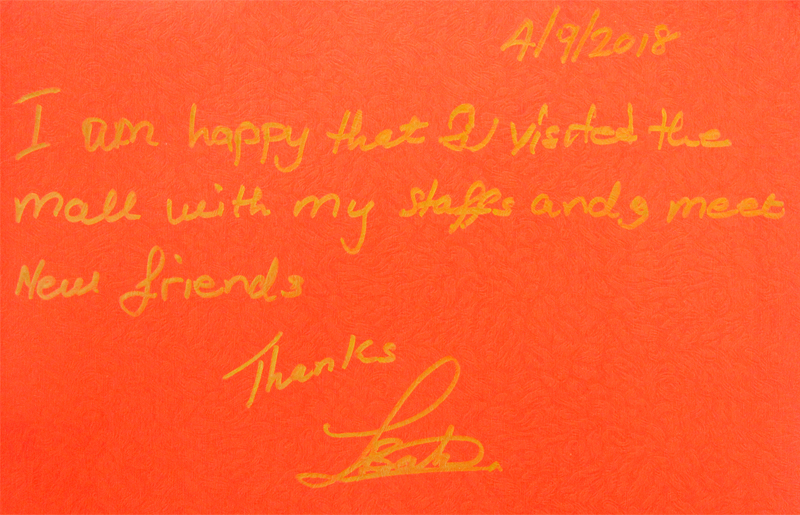 4/9/2018
I am happy that I visited the
mall with my staffs and meet
New friends
Thanks